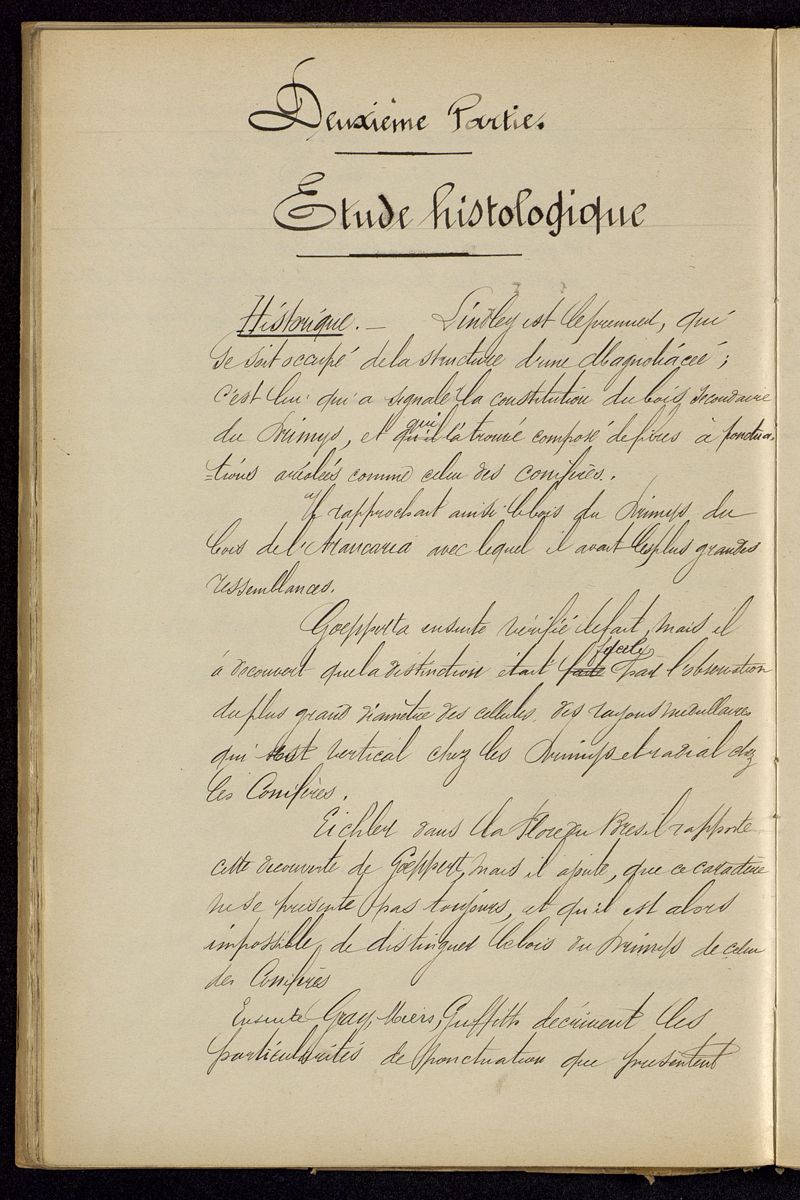 Deuxième Partie.
Etude histologique
Historique. — Lindley est le premier, qui
se soit occupé de la structure d'une Magnoliacée ;
c'est lui qui a signalé la constitution du bois secondaire
du Drimys, et qui l'a trouvé composé de fibres à ponctua-
-tions aréolées comme celui des conifères.
Il rapprochait ainsi le bois du Drimys du
bois de l'Araucaria avec lequel il avait les plus grandes
ressemblances.
Goeppert a ensuite vérifié le fait, mais il
a découvert que la distinction était facile par l'observation
du plus grand diamètre des cellules des rayons médullaires
qui est vertical chez les Drimys et radial chez
les Conifères.
Eichler dans la Flore du Brésil rapporte
cette découverte de Goeppert, mais il ajoute, que ce caractère
ne se présente pas toujours, et qu'il est alors
impossible, de distinguer le bois du Drimys de celui
des Conifères
Ensuite Gray, Miers, Griffith décrivent les
particularités de ponctuation que présentent